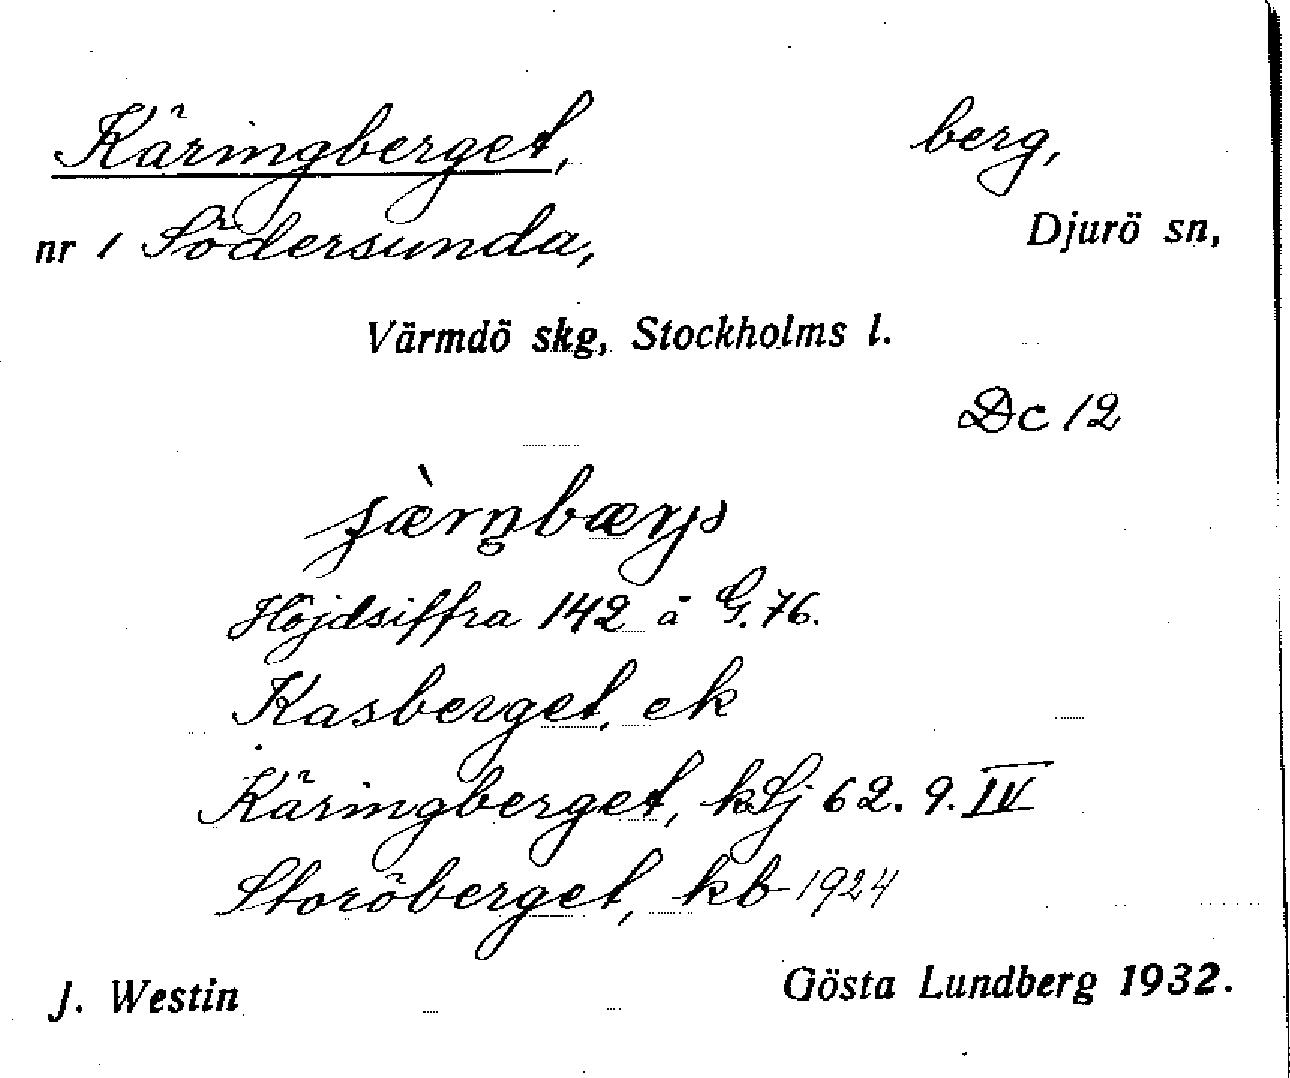 Käringberget, berg,
nr 1 Södersunda, Djurö sn,
Värmdö skg, Stockholms l.
Dc 12
Höjdsiffra 142 å G. 76.
Kasberget, ek
Käringberget, kSj 62. 9. IV
Storöberget, kb 1924
J. Westin Gösta Lundberg 1932.